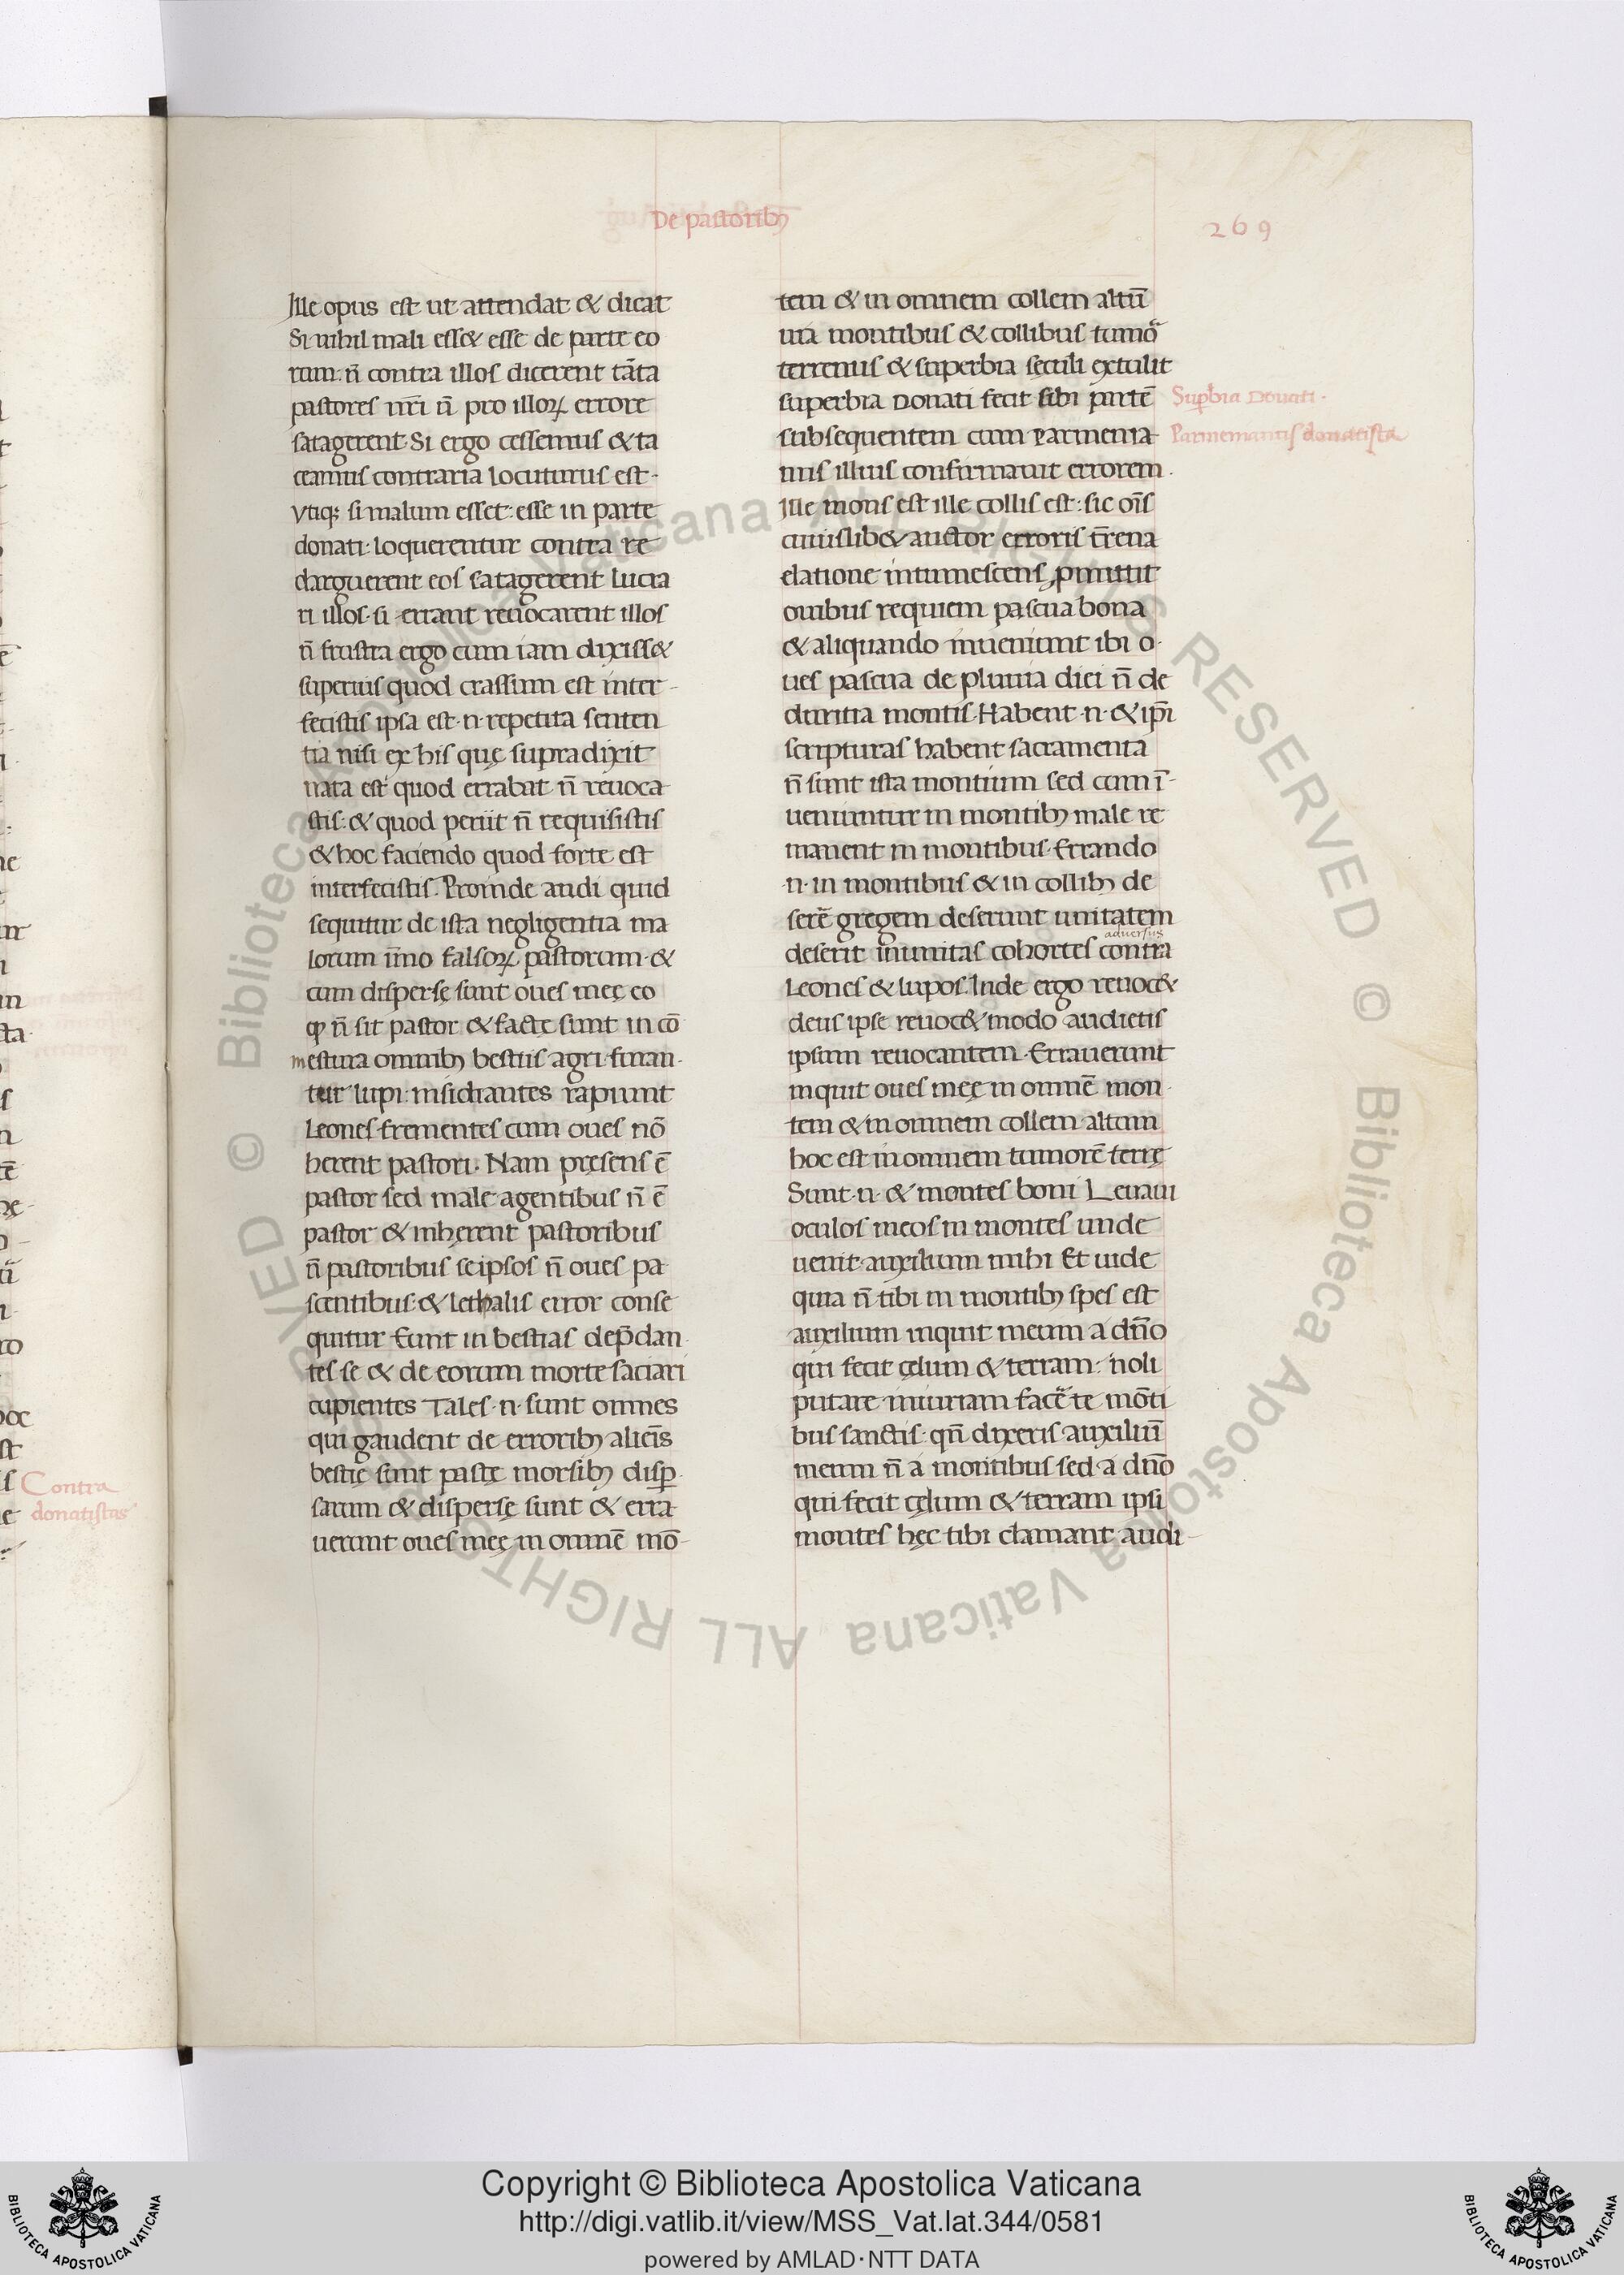 De pastoribꝰ
269
Ille opus est ut attendat & dicat
Si nihil mali ess& esse de parte eo
rum. n̄ contra illos dicerent tāta
pastores nr̄i n̄ pro illoꝝ errore
satagerent. Si ergo cessemus & ta
ceamus contraria locuturus est.
vtiqꝫ si malum esset: esse in parte
donati. loquerentur contra re
darguerent eos satagerent lucra
ri illos. si errant reuocarent illos
n̄ frustra ergo cum iam dixiss&
superius quod crassum est inter-
fecistis ipsa est .n. repetita senten
tia nisi ex his quę supradixit
nata est quod errabat n̄ reuoca
stis: & quod periit n̄ requisistis
& hoc faciendo quod forte est
interfecistis. Proinde audi quid
sequitur de ista negligentia ma
lorum īmo falsoꝝ pastorum. &
cum disperse sunt oues meę eo
ꝙ n̄ sit pastor & factę sunt in cō
mestura omnibꝫ bestiis agri. furan
tur lupi: insidiantes rapiunt
Leones frementes cum oues nō
herent pastori. Nam pręsens ē
pastor sed male agentibus n̄ ē
pastor & inhęrent pastoribus
n̄ pastoribus seipsos n̄ oues pa
scentibus. & lethalis error conse
quitur Eunt in bestias dep̄dan
tes se & de eorum morte saciari
cupientes Tales .n. sunt omnes
qui gaudent de erroribꝫ alienis
bestię sunt pastę morsibꝫ disꝑ
sarum & dispersę sunt & erra
uerunt oues meę in omnē mō-
tem & in omnem collem altū
una montibus & collibus tumōr
terrenus & superbia sęculi extulit
superbia Donati fecit sibi partē
subsequentem cum Parmenia
nus illius confirmauit errorem.
Ille mons est ille collis est: sic om̄s
cuiuslib& auctor erroris t̄rena
elatione intumescens ꝓmittit
ouibus requiem pascua bona
& aliquando inueniunt ibi o-
ues pascua de pluuia dici n̄ de
duritia montis. Habent .n. & ip̄i
scripturas habent sacramenta
n̄ sunt ista montium sed cum ī-
ueniuntur in montibꝫ male re
manent in montibus. Errando
.n. in montibus & in collibꝫ de
serē gregem deserunt unitatem
adversus
deserit inunitas cohortes contra
Leones & lupos. Inde ergo reuoc&
deus ipse reuoc& modo audietis
ipsum reuocantem. Errauerunt
inquit oues meę in omnē mon-
tem & in omnem collem altum
hoc est in omnem tumorē terrę
Sunt .n. & montes boni Leuaui
oculos meos in montes unde
uenit auxilium mihi Et uide
quia n̄ tibi in montibꝫ spes est
auxilium inquit meum a dn̄o
qui fecit cęlum & terram: noli
putare iniuriam facēr te mōti
bus sanctis: qn̄ dixeris auxiliū
meum n̄ a montibus sed a dn̄o
qui fecit cęlum & terram ipsi
montes hęc tibi clamant audi-
Supbia Donati.
Parmenianus donatista
Contra
donatistas
Copyright © Biblioteca Apostolica Vaticana
http://digi.vatlib.it/view/MSS_Vat.lat.344/0581
powered by AMLAD·NTT DATA
BIBLIOTECA APOSTOLICA VATICANA
BIBLIOTECA APOSTOLICA VATICANA
© Biblioteca Apostolica Vaticana ALL RIGHTS RESERVED © Biblioteca Apostolica Vaticana ALL RIGHTS RESERVED